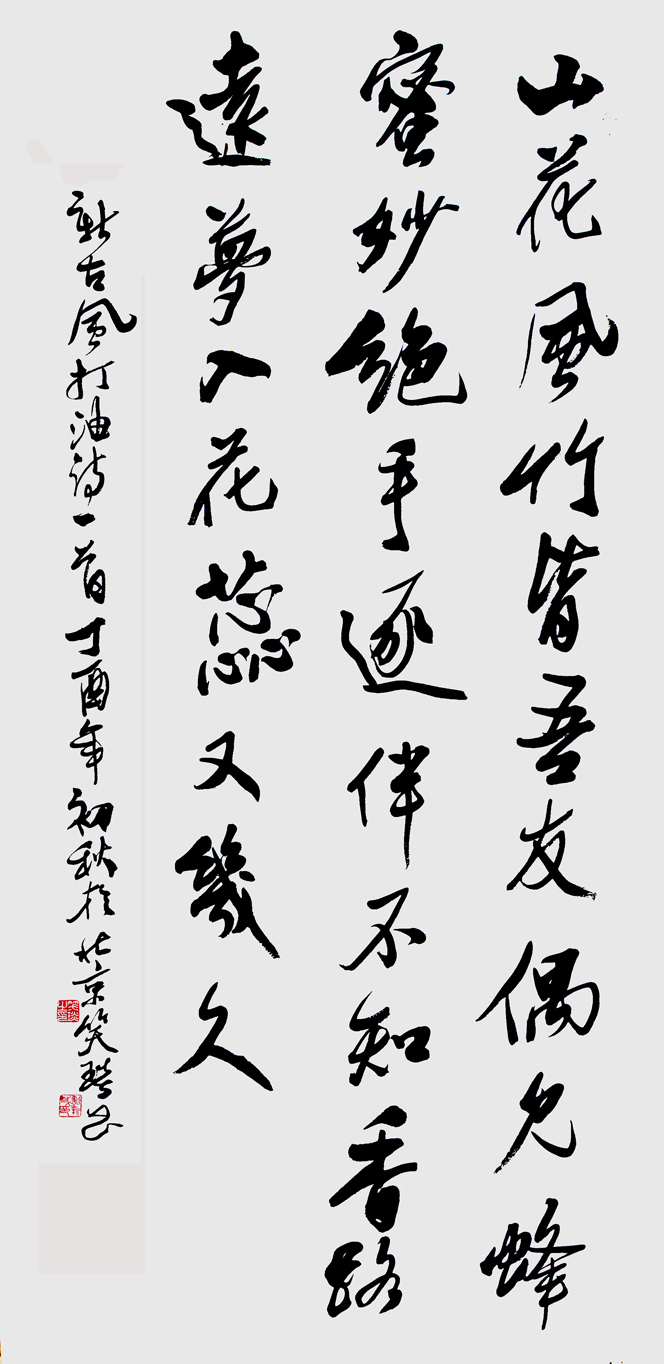 山花風竹皆吾友偶見蜂
蜜妙絕手逐伴不知香路
遠夢入花蕊又幾久
新古風打油詩一首丁酉年初秋於北京笑琰书